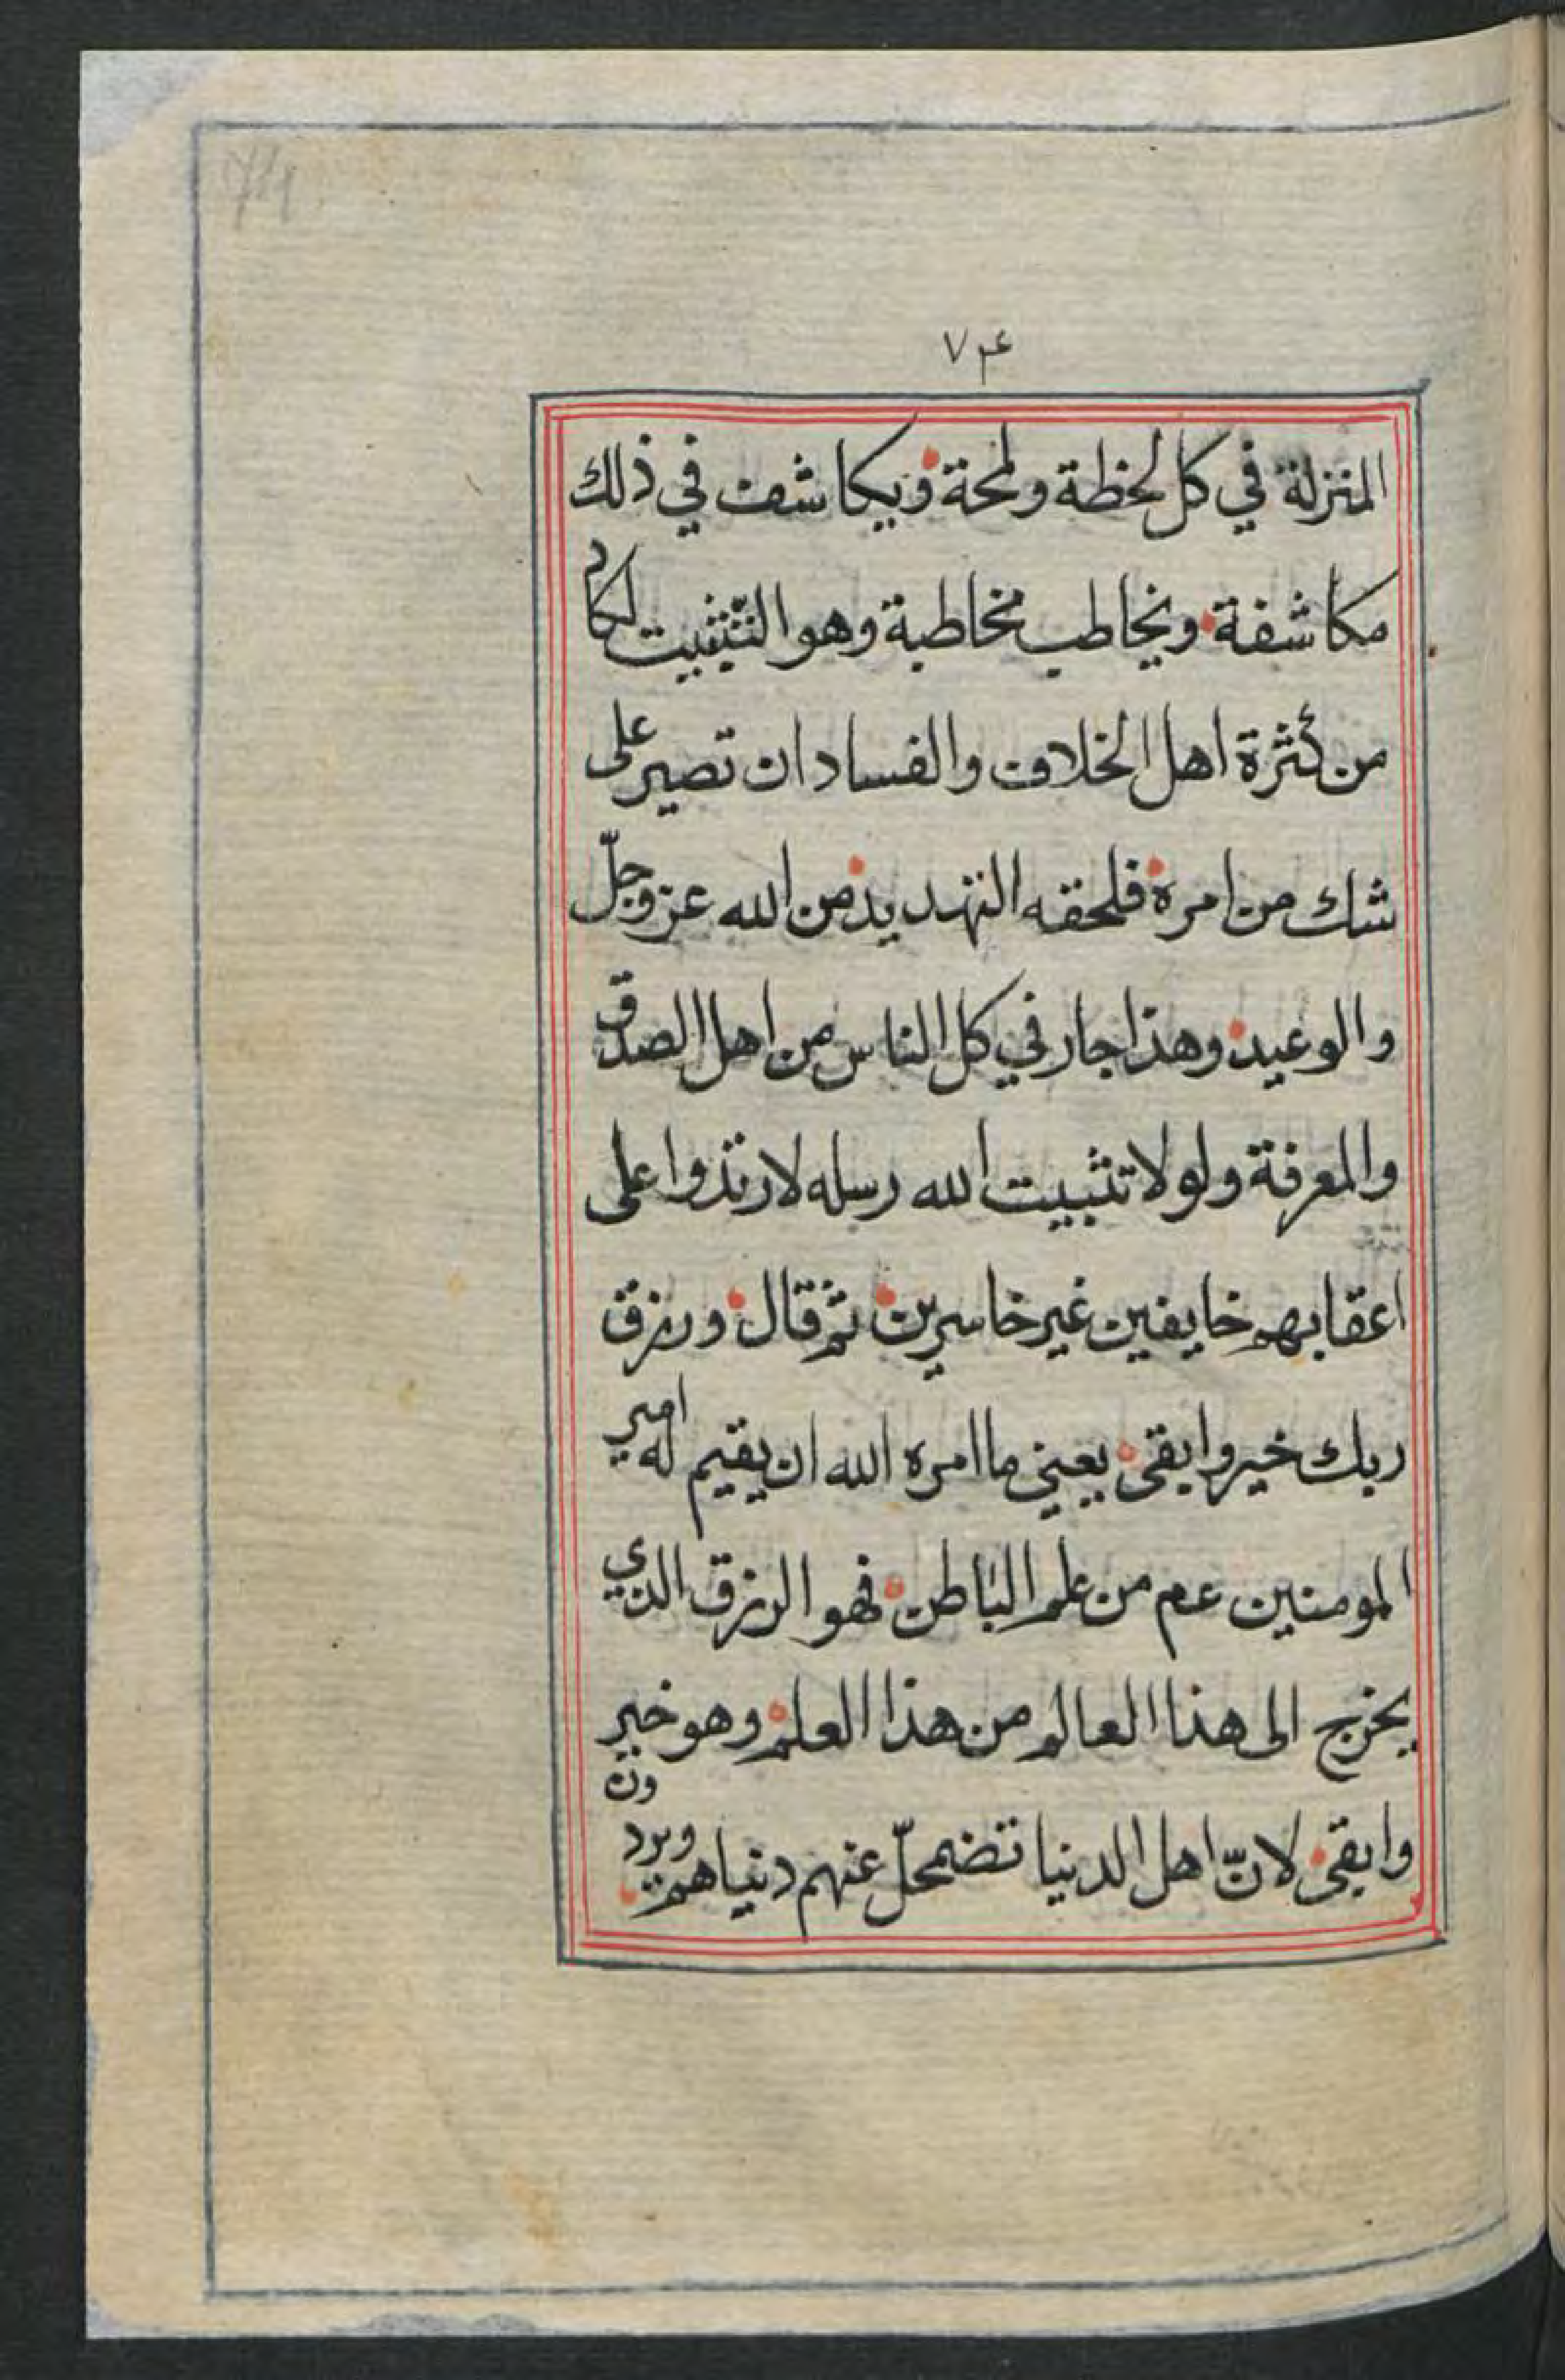 74
٧۴
المنزلة في كل لحظة ولمحة ويكاشف في ذلك
مكاشفة ويخاطب مخاطبة وهو التثبيت
من كثرة اهل الخلاف والفساد ان تصير على
شك من امره فلحقه التهديد من الله عز وجلّ
والوعيد وهذا جار في كل الناس من اهل الصدق
والمعرفة ولولا تثبيت الله رسله لارتدوا على
اعقابهم خايفين غير خاسرين ثم قال ورزق
ربك خير وابقى يعني ما امره الله ان يقيم له امير
المومنين عم من علم الباطن فهو الرزق الذي
يخرج الى هذا العالم من هذا العلم وهو خير
وابقى لانّ اهل الدنيا تضمحلّ عنهم دنياهم ويردون